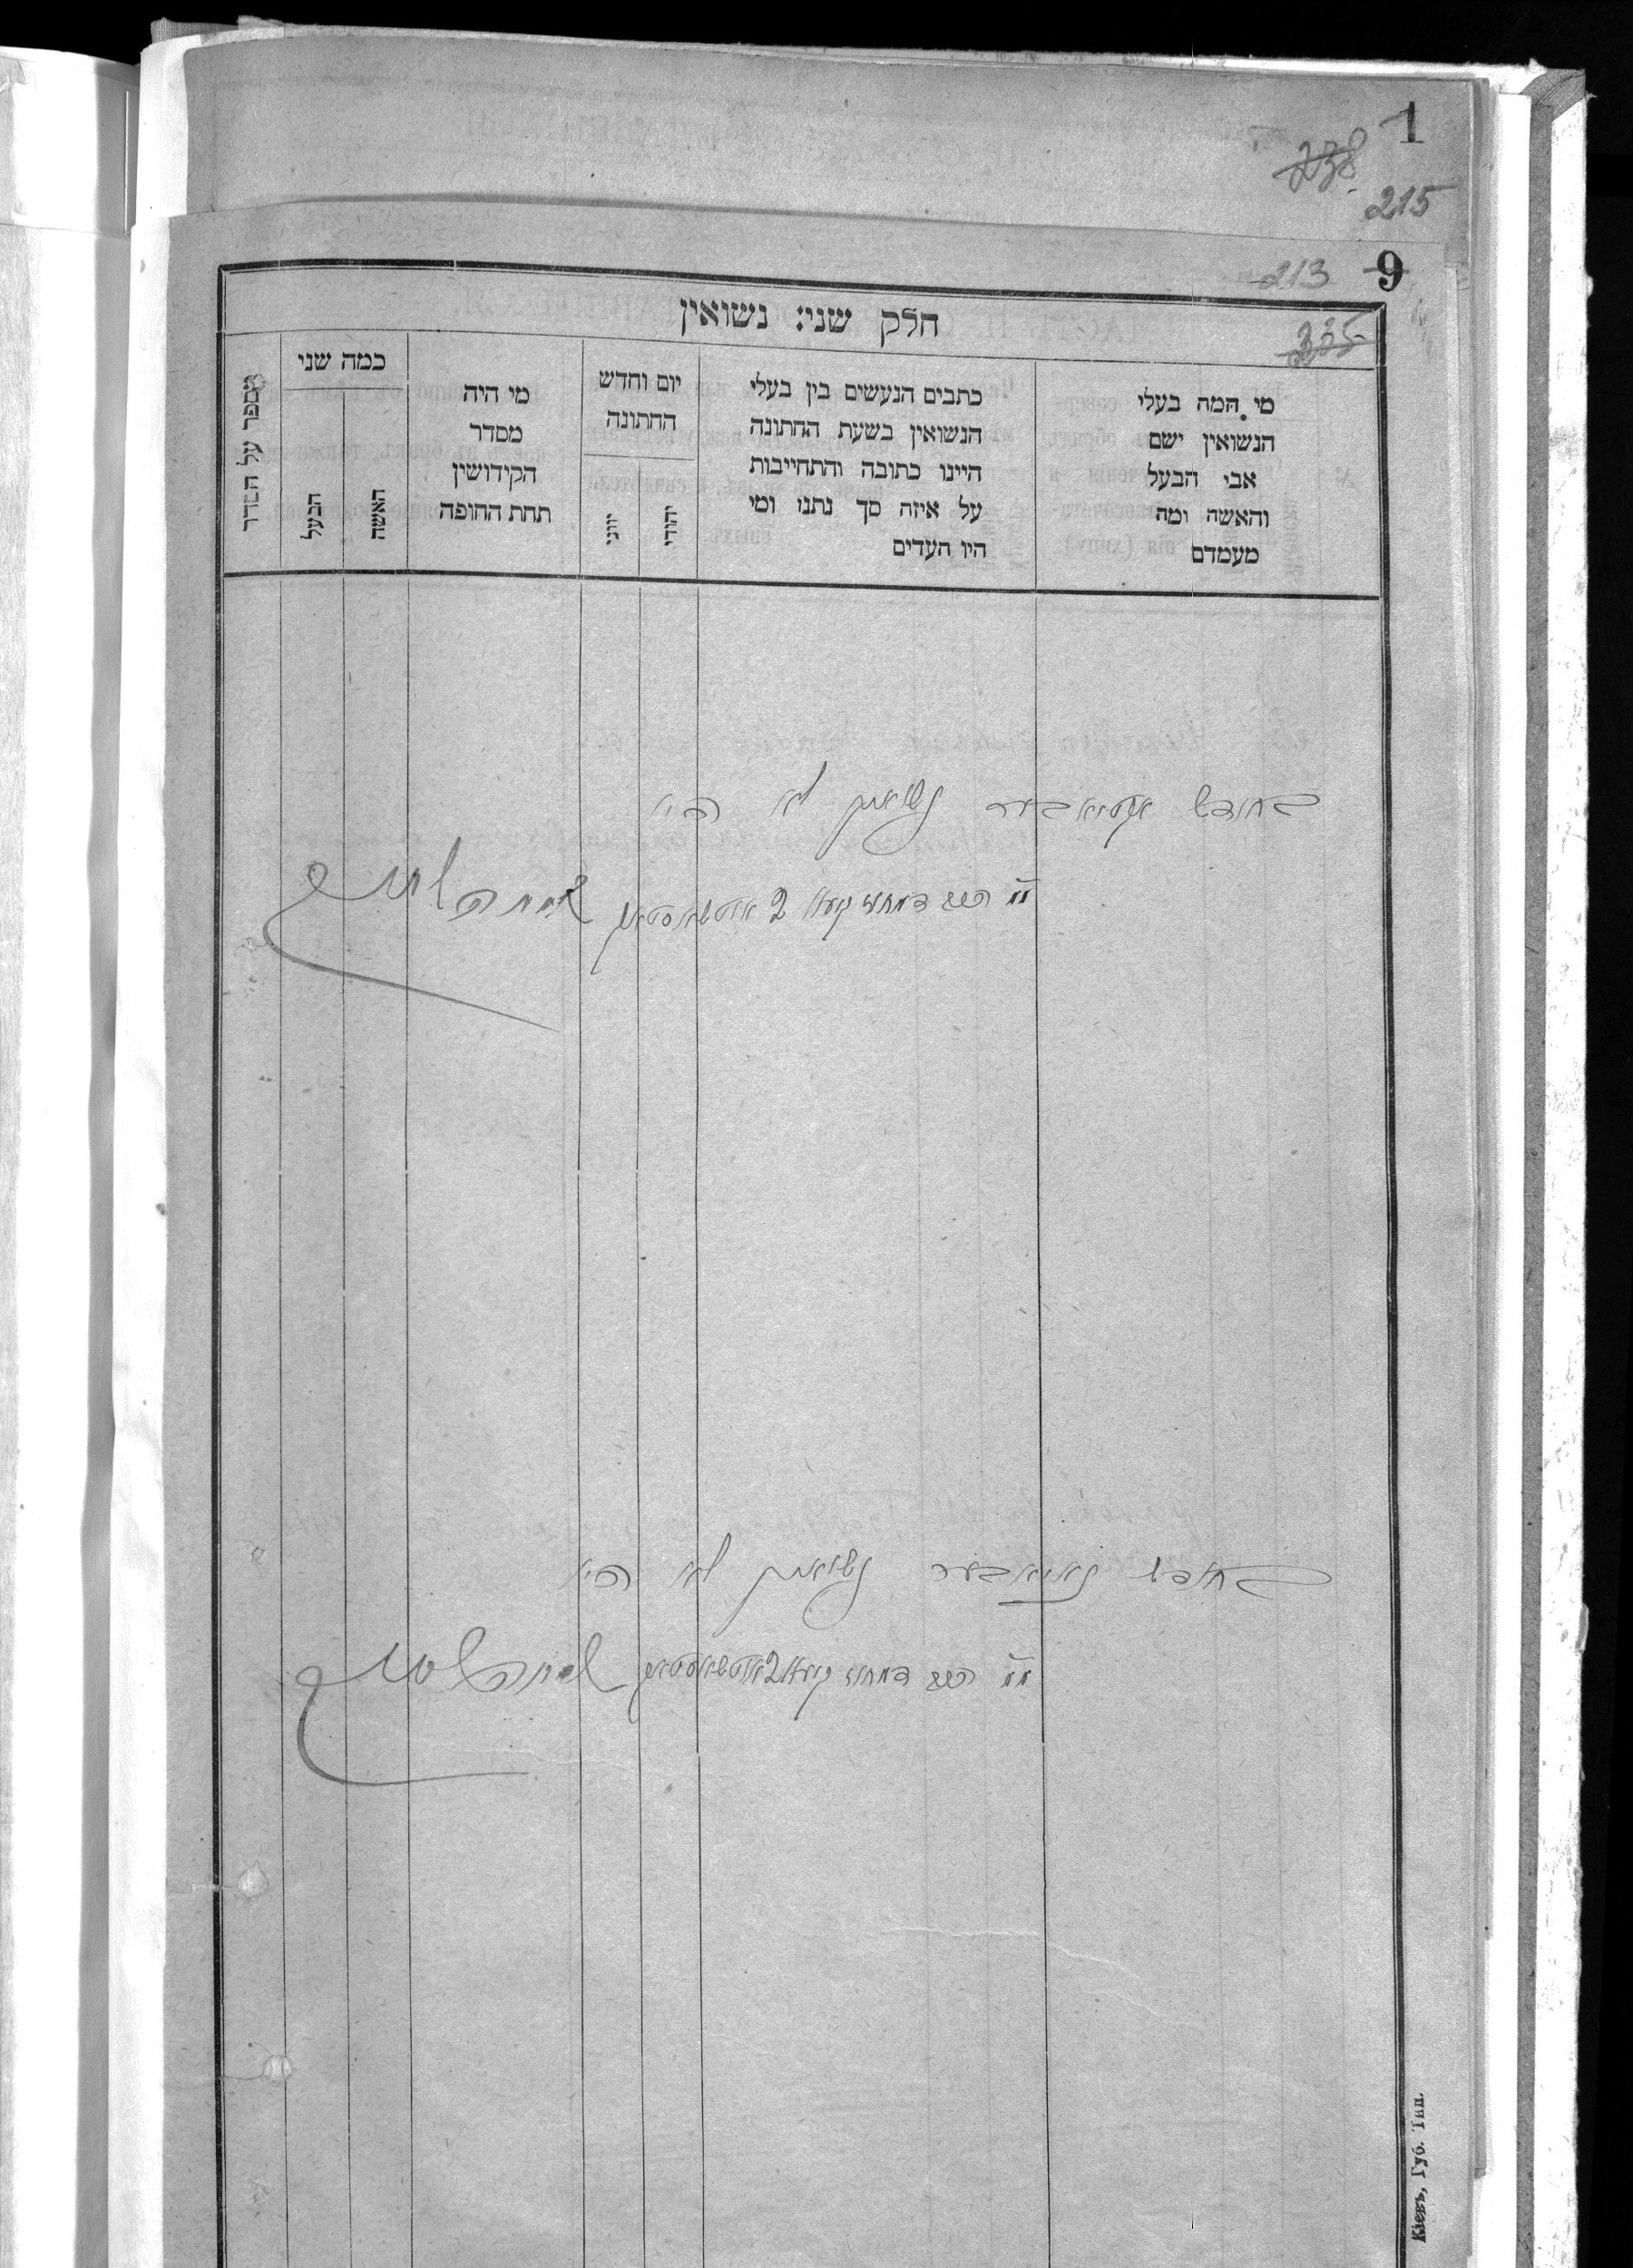 1
238
215
213 9
335
חלק שני: נשואין
מי המה בעלי
הנשואין ישם
אבי הבעל
והאשה ומה
מעמדם
כתבים הנעשים בין בעלי
הנשואין בשעת החתונה
היינו כתובה והתחייבות
על איזה סך נתנו ומי
היו העדים
יום וחדש
החתונה
יהודי
יווני
מי היה
מסדר
הקידושין
תחת החופה
כמה שני
האשה
הבעל
מספר על הסדר
בחודש אקטיאבער נשואין לא היו
בחודש נאיאבער נשואין לא היו
Кіевъ, Губ. Тип.